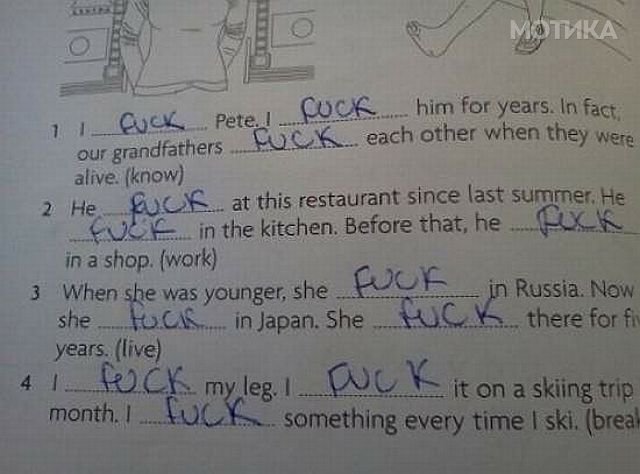 МОТИКА
1 I FUCK Pete. I FUCK him for years. In fact,
our grandfathers FUCK each other when they were
alive. (know)
2 He FUCK at this restaurant since last summer. He
FUCK in the kitchen. Before that, he FUCK
in a shop. (work)
3 When she was younger, she FUCK in Russia. Now
she FUCK in Japan. She FUCK there for
years. (live)
4 I FUCK my leg. I FUCK it on a skiing trip
month. I FUCK something every time I ski. (break